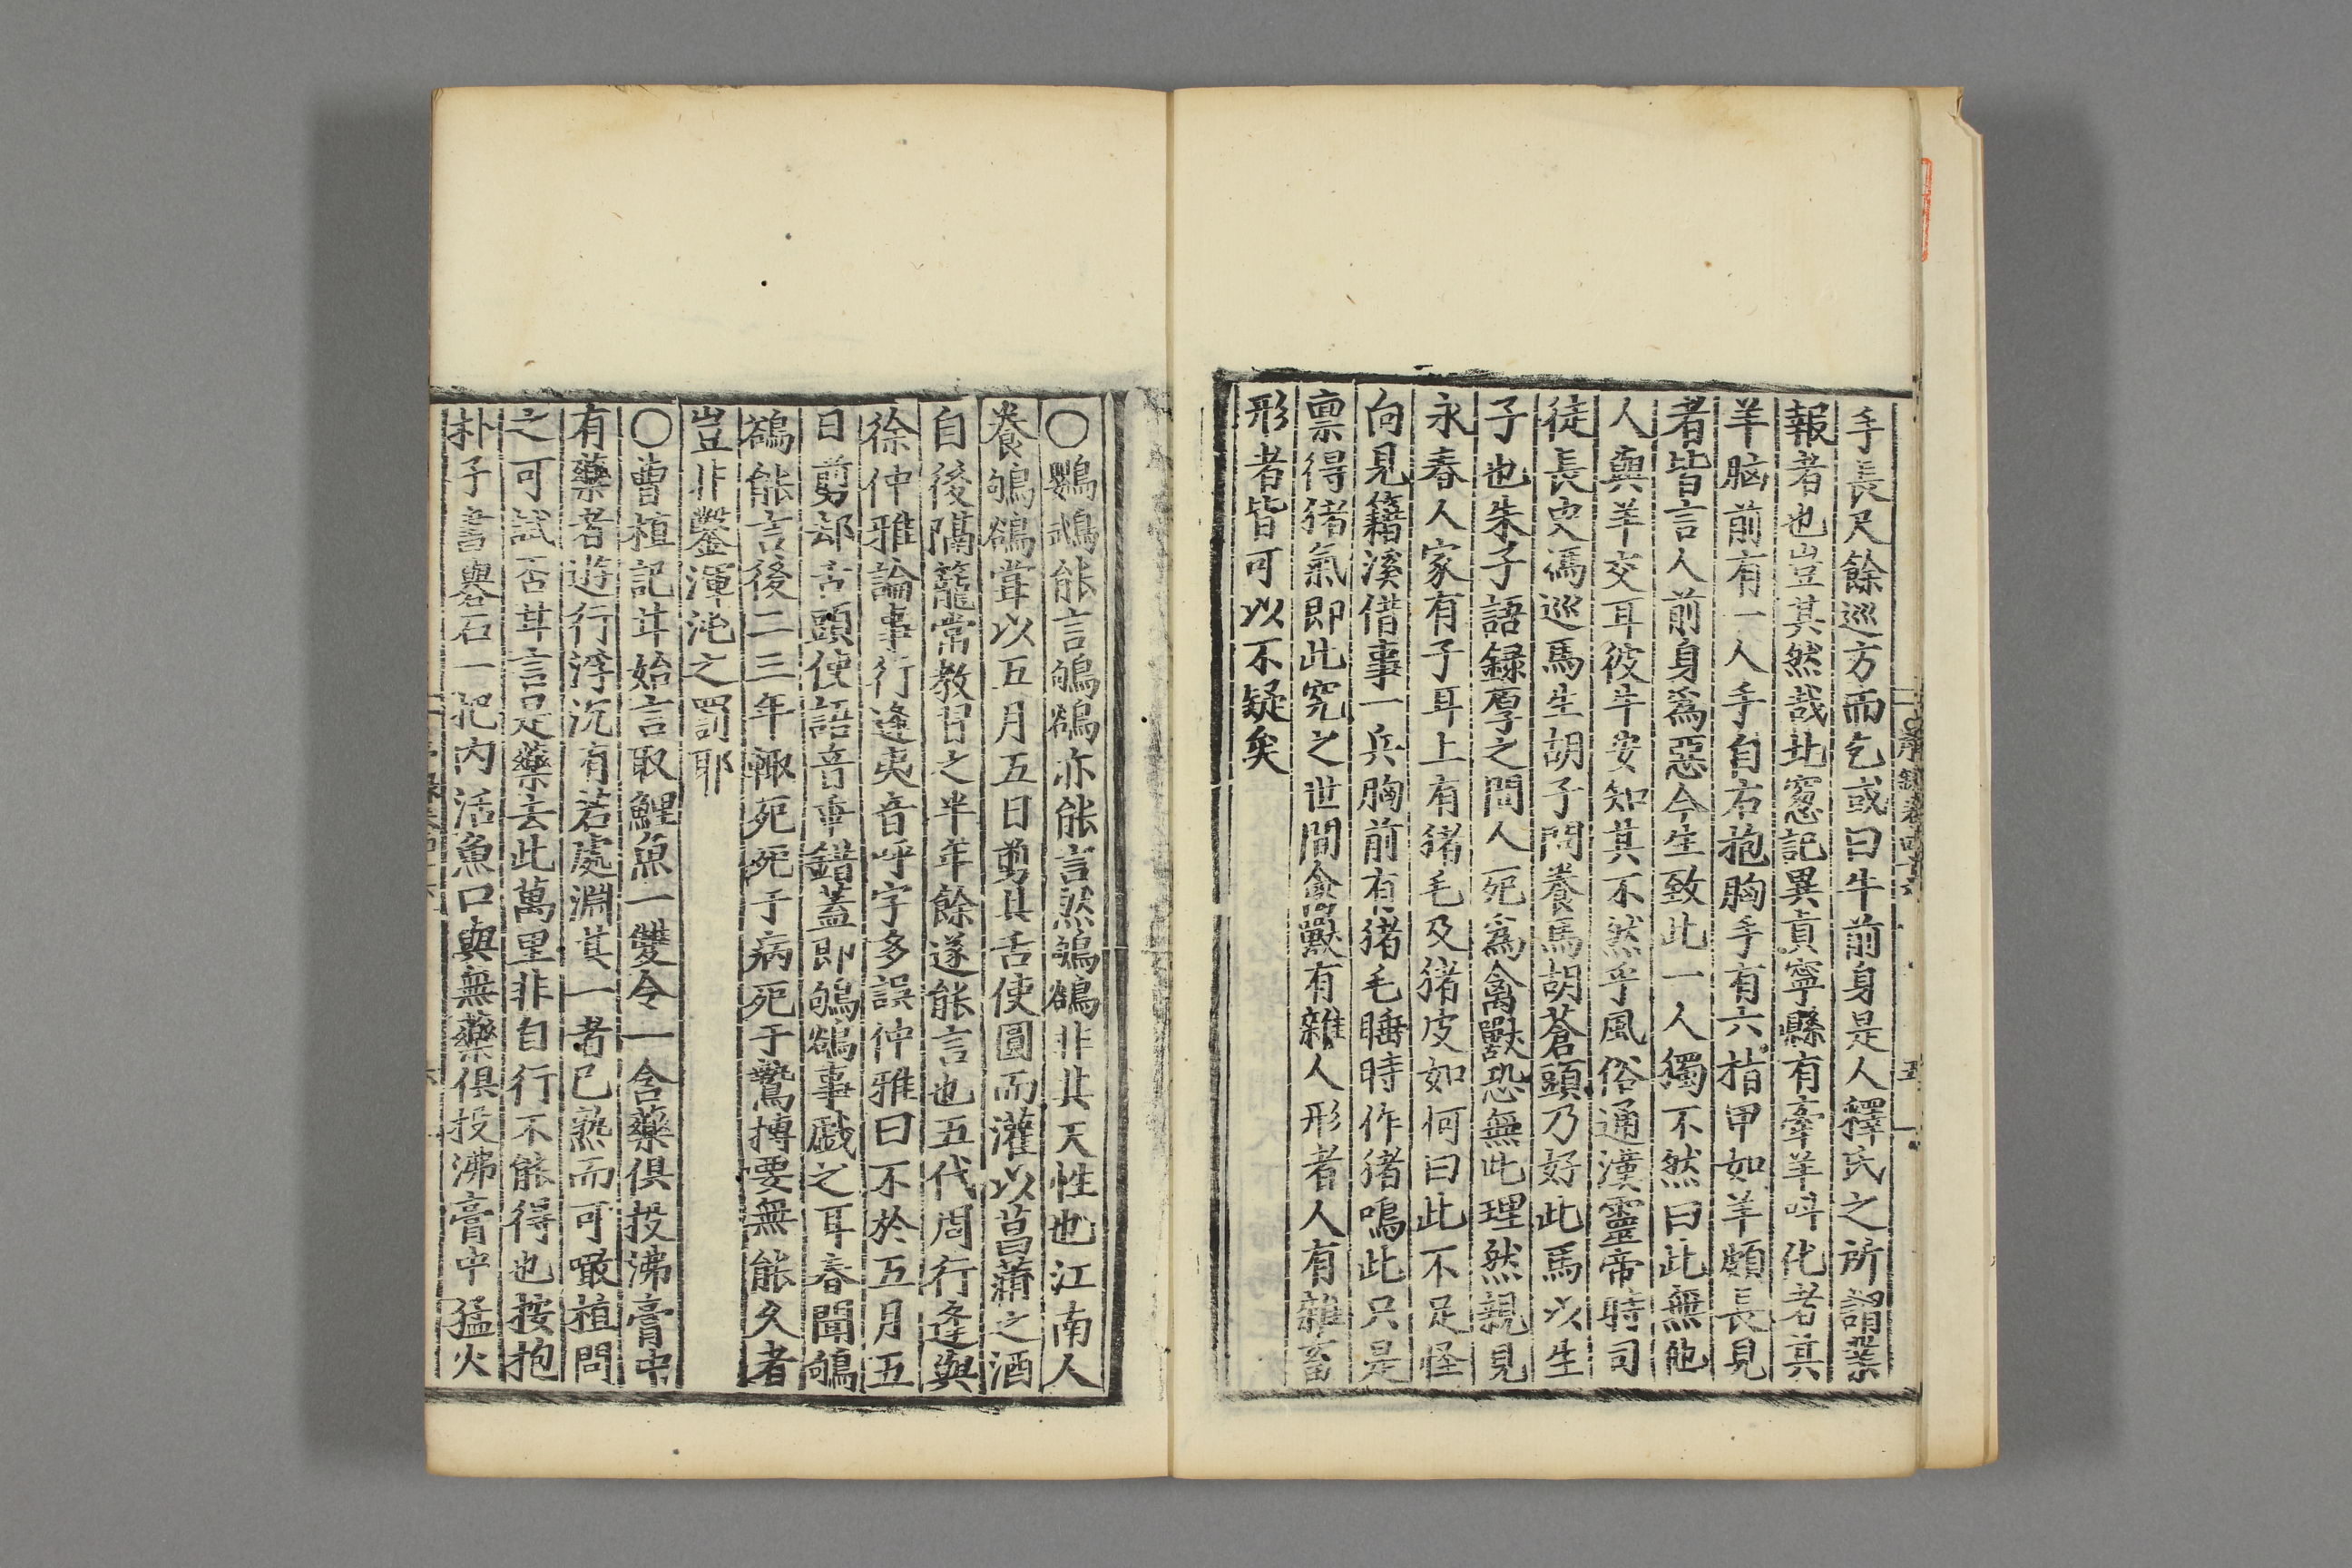 手長尺餘巡方而乞或曰牛前身是人釋氏之所謂業
報者也豈其然哉北窓記異眞寧縣有牽羊呌化者其
羊脑前有一人手自右抱胸手有六指甲如羊頗長見
者皆言人前身爲惡今生致此一人獨不然曰此無他
人與羊交耳彼牛安知其不然乎風俗通漢靈帝時司
徒長史馮巡馬生胡子問養馬胡蒼頭乃好此馬以生
子也朱子語録厚之問人死爲禽獸恐無此理然親見
永春人家有子耳上有猪毛及猪皮如何曰此不足怪
向見籍溪借事一兵胸前有猪毛睡時作猪鳴此只是
禀得猪氣即此究之世間禽獸有雜人形者人有雜畜
形者皆可以不疑矣
〇鸚鵡能言鴝鵒亦能言然鴝鵒非其天性也江南人
養鴝鵒當以五月五日剪其舌使圓而灌以菖蒲之酒
自後隔籠常教習之半年餘遂能言也五代周行逢與
徐仲雅論事行逢夷音呼字多誤仲雅曰不於五月五
日剪却舌頭使語音重錯蓋即鴝鵒事戱之耳春聞鴝
鵒能言後二三年輙死死于病死于鷙搏要無能久者
豈非鑿渾沌之罰耶
〇曹植記甘始言取鯉魚一雙令一含藥俱投沸膏中
有藥者遊行浮沉有若處淵其一者已熟而可噉植問
之可試否甘言是藥去此萬里非自行不能得也按抱
朴子書礜石一把内活魚口與無藥俱投沸膏中猛火